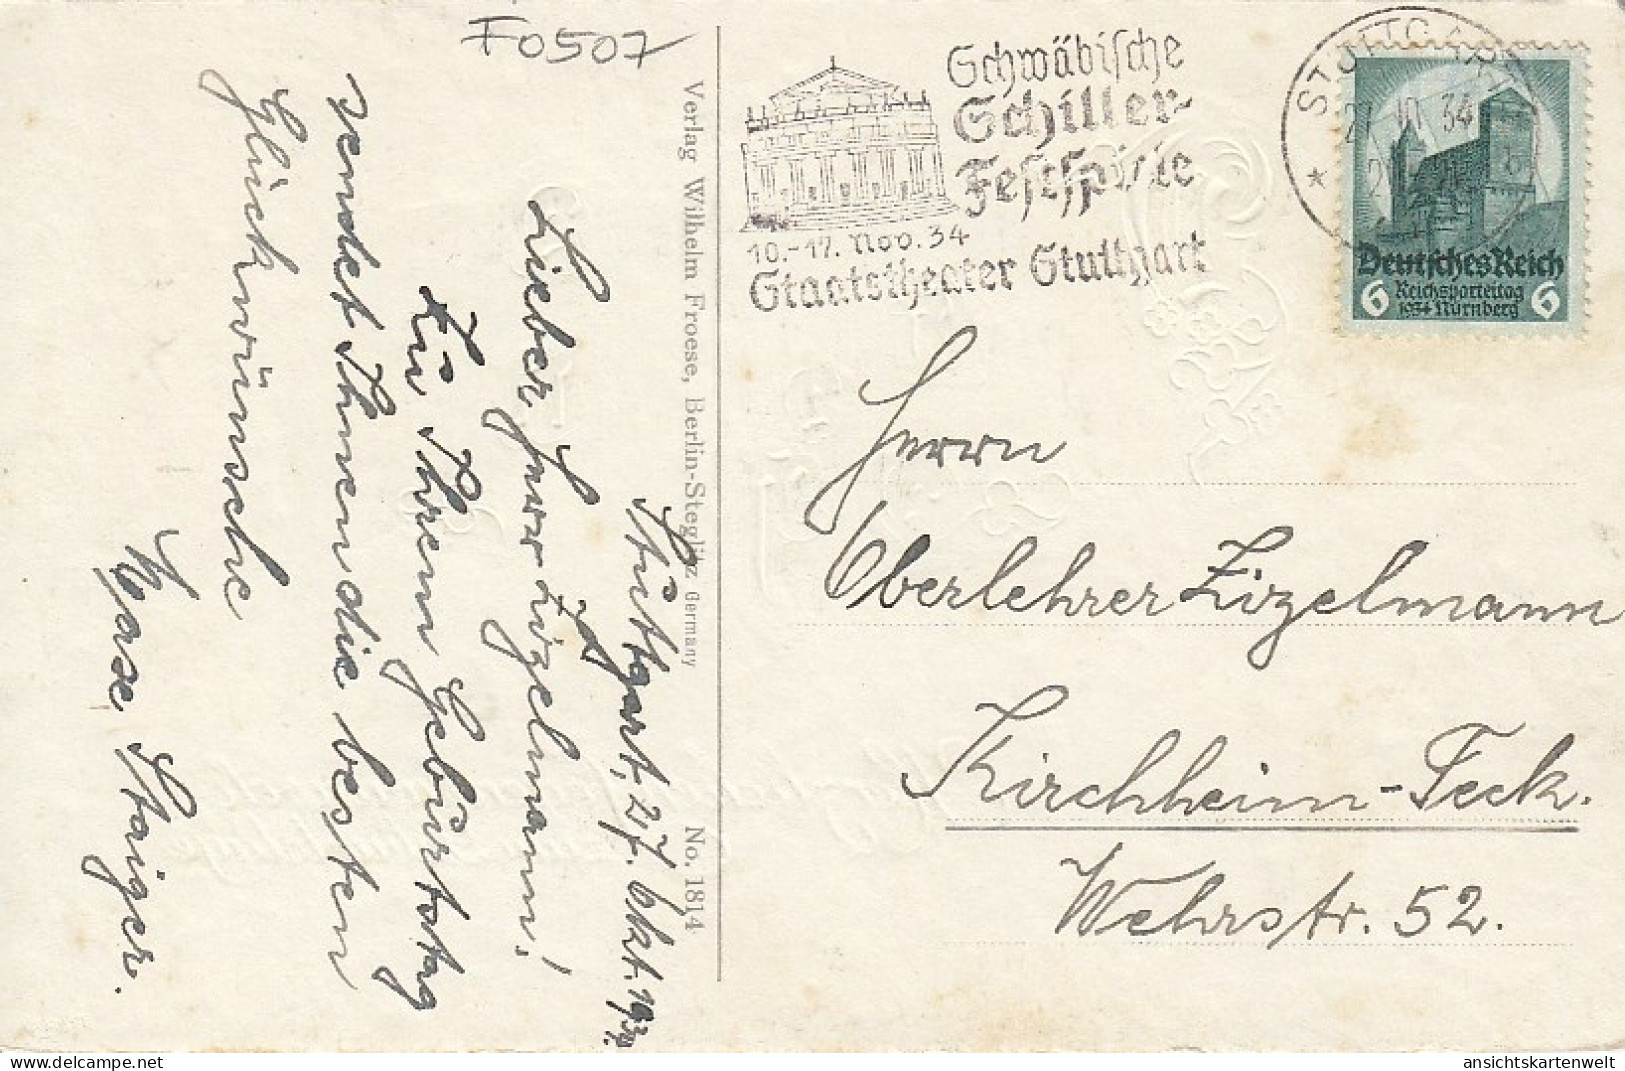 F0507
Stuttgart, 27. Okt. 1934.
Lieber Herr Zizelmann!
Zu Ihrem Geburtstag
sendet Ihnen die besten
Glückwünsche
Rose Staiger.
Verlag Wilhelm Froese, Berlin-Steglitz Germany No. 1814
Schwäbische
Schiller-
Festspiele
10.-17. Nov. 34
Staatstheater Stuttgart
STUTTGART
27.10.34
Deutsches Reich
6 Reichsparteitag 6
1934 Nürnberg
Herrn
Oberlehrer Zizelmann
Kirchheim-Teck.
Wehrstr. 52.
hip-post.com
ansichtskartenwelt